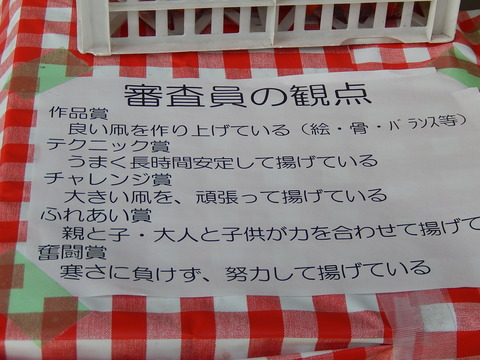 審査員の観点
作品賞
良い凧を作り上げている（絵・骨・ﾊﾞﾗﾝｽ等）
テクニック賞
うまく長時間安定して揚げている
チャレンジ賞
大きい凧を、頑張って揚げている
ふれあい賞
親と子・大人と子供が力を合わせて揚げて
奮闘賞
寒さに負けず、努力して揚げている